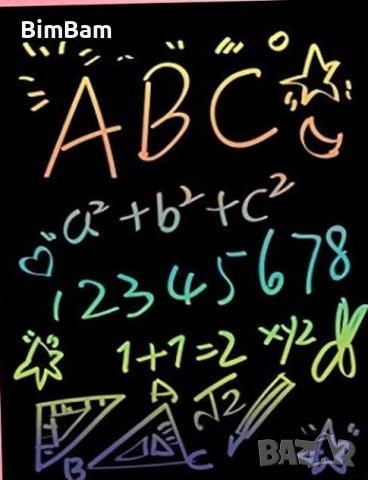 BimBam
ABC
a²+b²+c²
12345678
1+1=2 xyz
A √2
B C
BAZAR